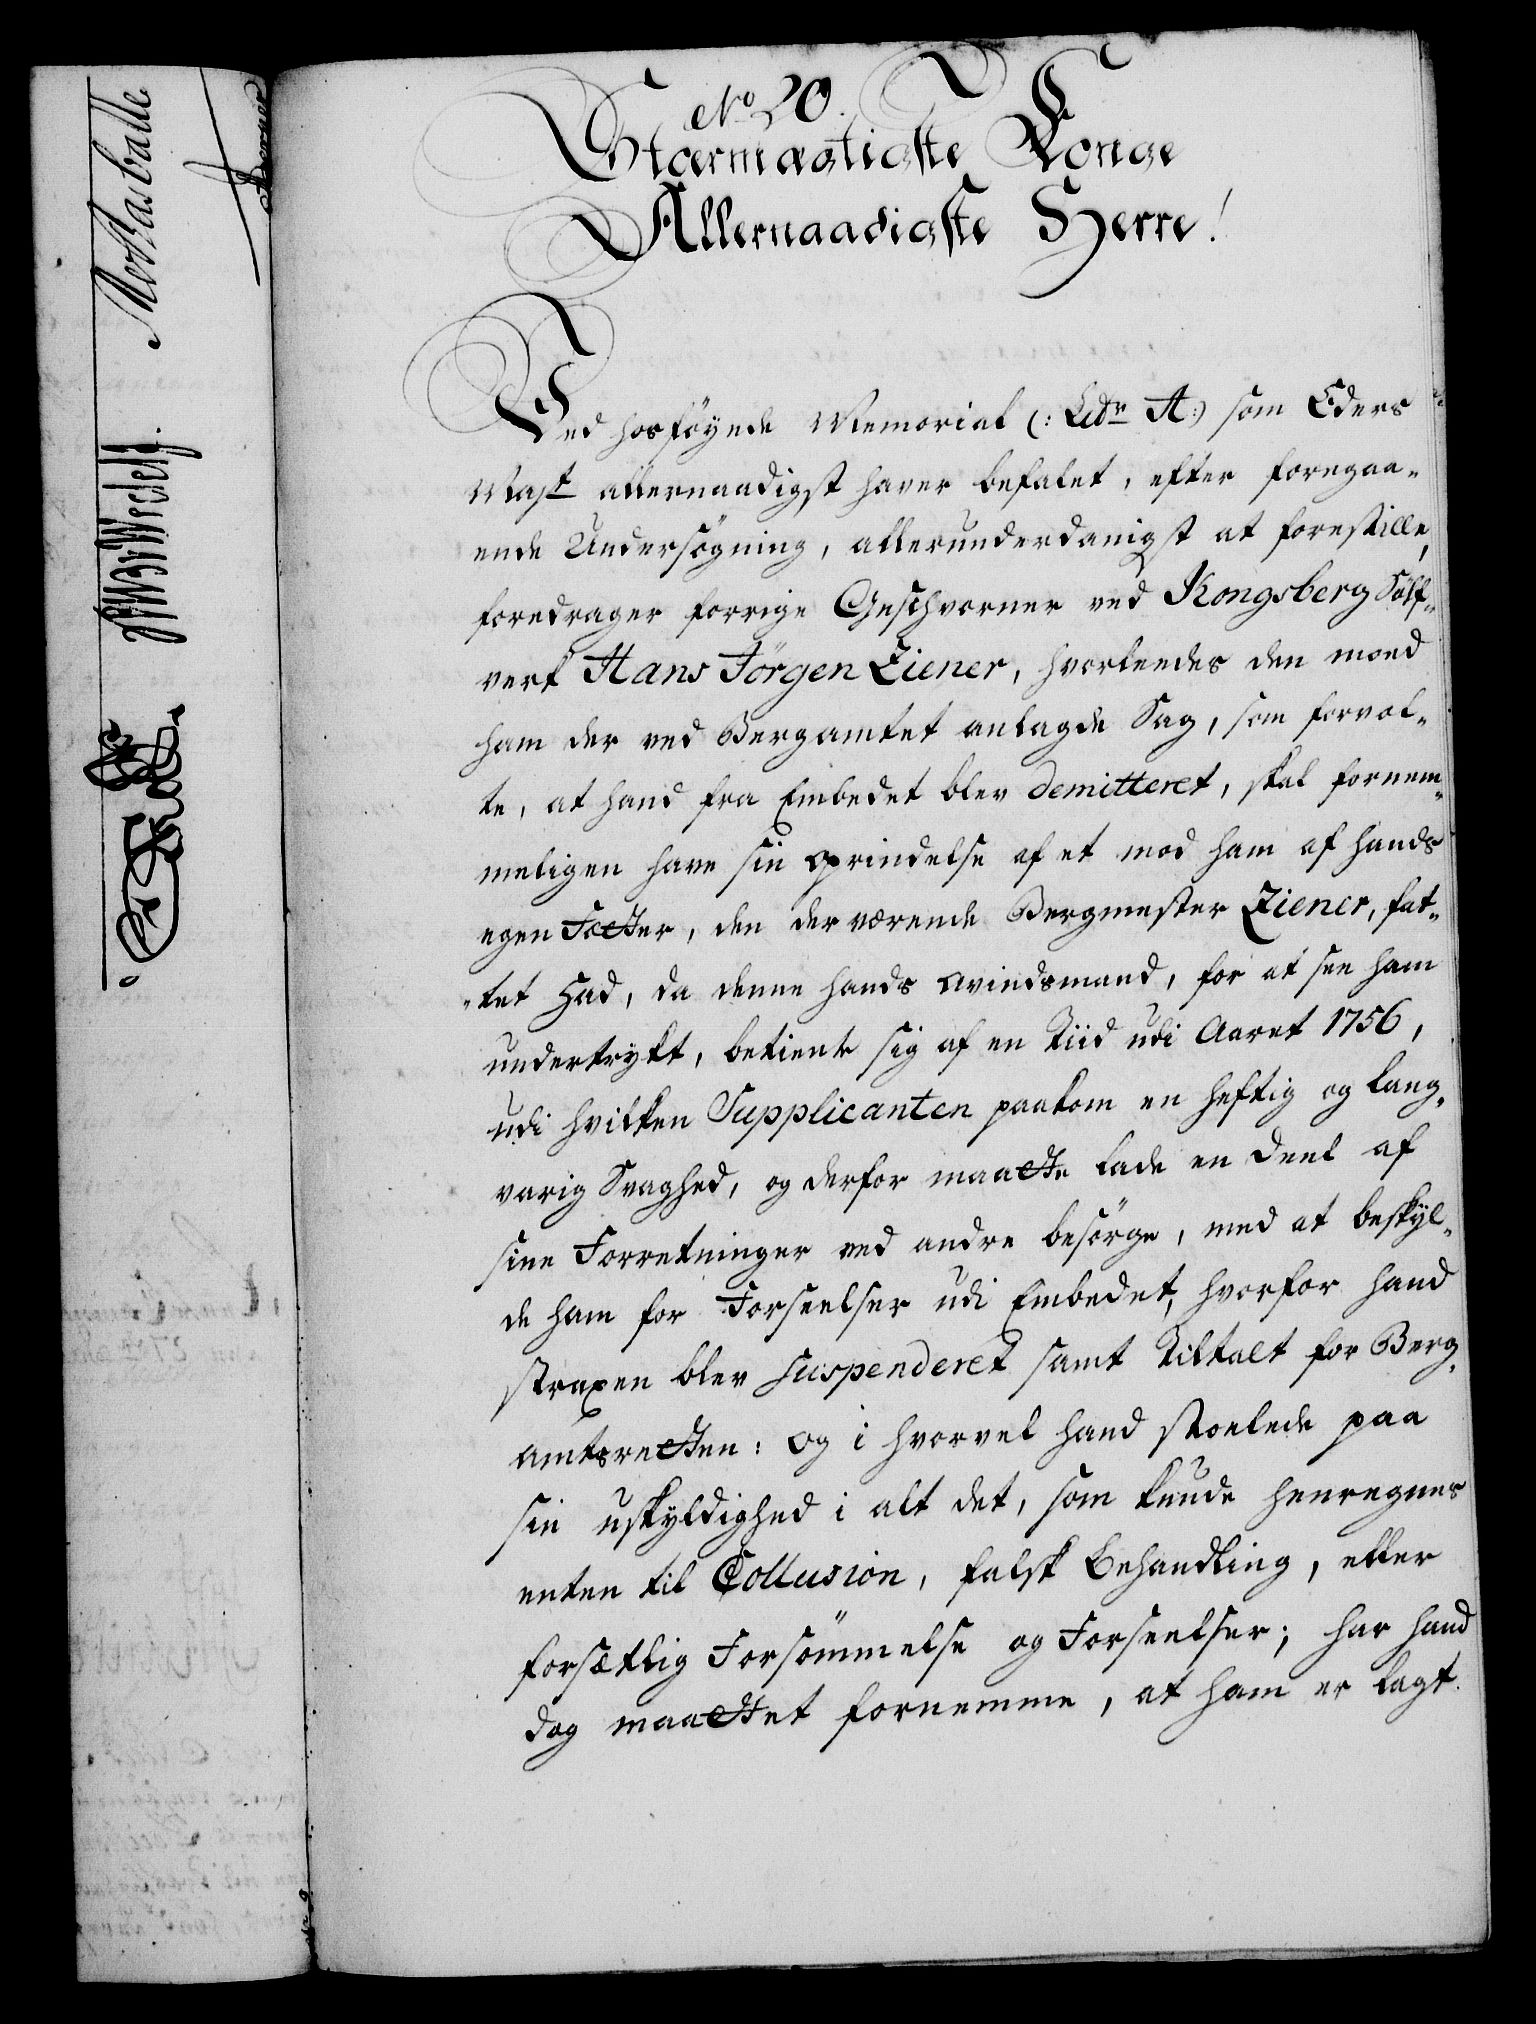 No 20.
Stormægtigste Konge
Allernaadigste Herre!
Ved hosföyede Memorial (: Litr A:) som Eders
Majt allernaadigst haver befalet, efter foregaa-
ende Undersögning, allerunderdanigst at forestille,
foredrager forrige Geschvorner ved Kongsberg Sölf-
verk Hans Jörgen Ziener, hvorleedes den moed
ham der ved Bergamtet anlagde Sag, som forvol-
te, at hand fra Embedet blev demitteret, skal fornem-
meligen have sin oprindelse af et mod ham af hands
egen Fætter, den der værende Bergmester Ziener, fat-
tet Had, da denne hands Avindsmand, for at see ham
undertrykt, betiente sig af en Tiid udi Aaret 1756,
udi hvilken Supplicanten paakom en heftig og lang-
varig Svaghed, og derfor maatte lade en Deel af
sine Forretninger ved andre besörge, med at beskyl-
de ham for Forseelser udi Embedet, hvorfor hand
straxen blev suspenderet samt tiltalt for Berg-
amtsretten: og i hvorvel hand stoelede paa
sin uskyldighed i alt det, som kunde henregnes
enten til Collusion, falsk Behandling, eller
forsætlig Forsömmelse og Forseelser; har hand
dog maattet fornemme, at ham er lagt